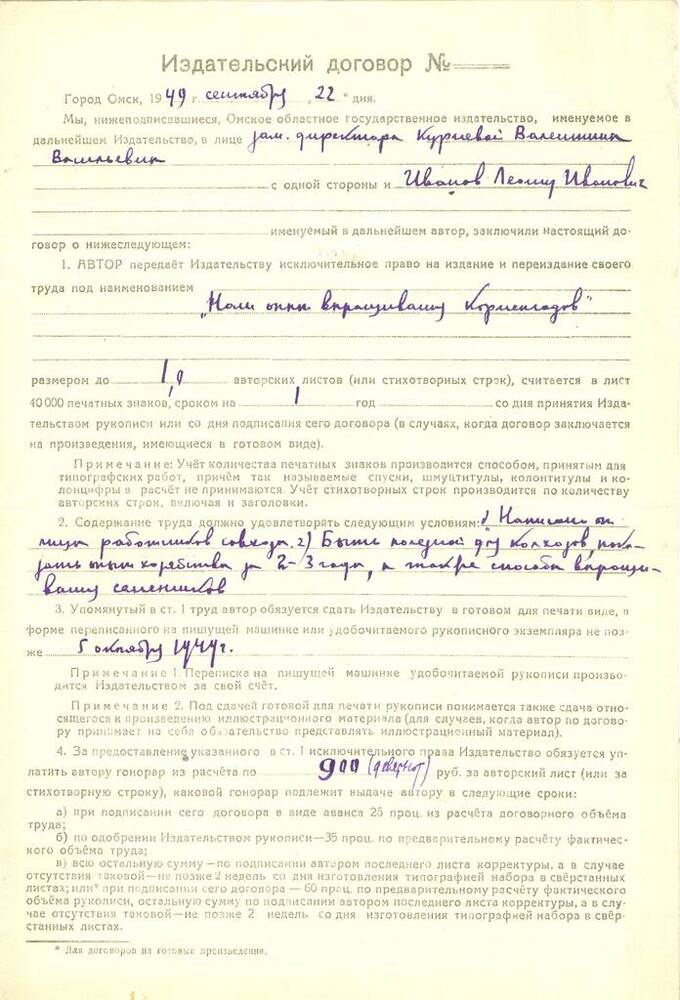 Издательский договор №
Город Омск, 1949 г. сентября „22" дня.
Мы, нижеподписавшиеся, Омское областное государственное издательство, именуемое в
дальнейшем Издательство, в лице зам. директора Куриевой Валентины
Васильевны
с одной стороны и Иванов Леонид Иванович
именуемый в дальнейшем автор, заключили настоящий до-
говор о нижеследующем:
1. АВТОР передаёт Издательству исключительное право на издание и переиздание своего
труда под наименованием
„Наш опыт выращивания Корнеплодов"
размером до 1,0 авторских листов (или стихотворных строк), считается в лист
40000 печатных знаков, сроком на 1 год со дня принятия Изда-
тельством рукописи или со дня подписания сего договора (в случаях, когда договор заключается
на произведения, имеющиеся в готовом виде).
Примечание: Учёт количества печатных знаков производится способом, принятым для
типографских работ, причём так называемые спуски, шмуцтитулы, колонтитулы и ко-
лонцифры в расчёт не принимаются. Учёт стихотворных строк производится по количеству
авторских строк, включая и заголовки.
2. Содержание труда должно удовлетворять следующим условиям: 1) Написан от
лица работников совхоза. 2) Быть полезной для колхозов, пока-
зать опыт хозяйства за 2-3 года, а также способы выращи-
вания семенников
3. Упомянутый в ст. 1 труд автор обязуется сдать Издательству в готовом для печати виде, в
форме переписанного на пишущей машинке или удобочитаемого рукописного экземпляра не поз-
же 5 октября 1949 г.
Примечание 1. Переписка на пишущей машинке удобочитаемой рукописи произво-
дится Издательством за свой счёт.
Примечание 2. Под сдачей готовой для печати рукописи понимается также сдача отно-
сящегося к произведению иллюстрационного материала (для случаев, когда автор по догово-
ру принимает на себя обязательство представлять иллюстрационный материал).
4. За предоставление указанного в ст. 1 исключительного права Издательство обязуется уп-
латить автору гонорар из расчёта по 900 (девятьсот) руб. за авторский лист (или за
стихотворную строку), каковой гонорар подлежит выдаче автору в следующие сроки:
а) при подписании сего договора в виде аванса 25 проц. из расчёта договорного объёма
труда;
б) по одобрении Издательством рукописи—35 проц. по предварительному расчёту фактичес-
кого объёма труда;
в) всю остальную сумму—по подписании автором последнего листа корректуры, а в случае
отсутствия таковой—не позже 2 недель со дня изготовления типографией набора в свёрстанных
листах; или* при подписании сего договора — 60 проц. по предварительному расчёту фактического
объёма рукописи, остальную сумму по подписании автором последнего листа корректуры, а в слу-
чае отсутствия таковой—не позже 2 недель со дня изготовления типографией набора в свёр-
станных листах.
* Для договоров на готовые произведения.